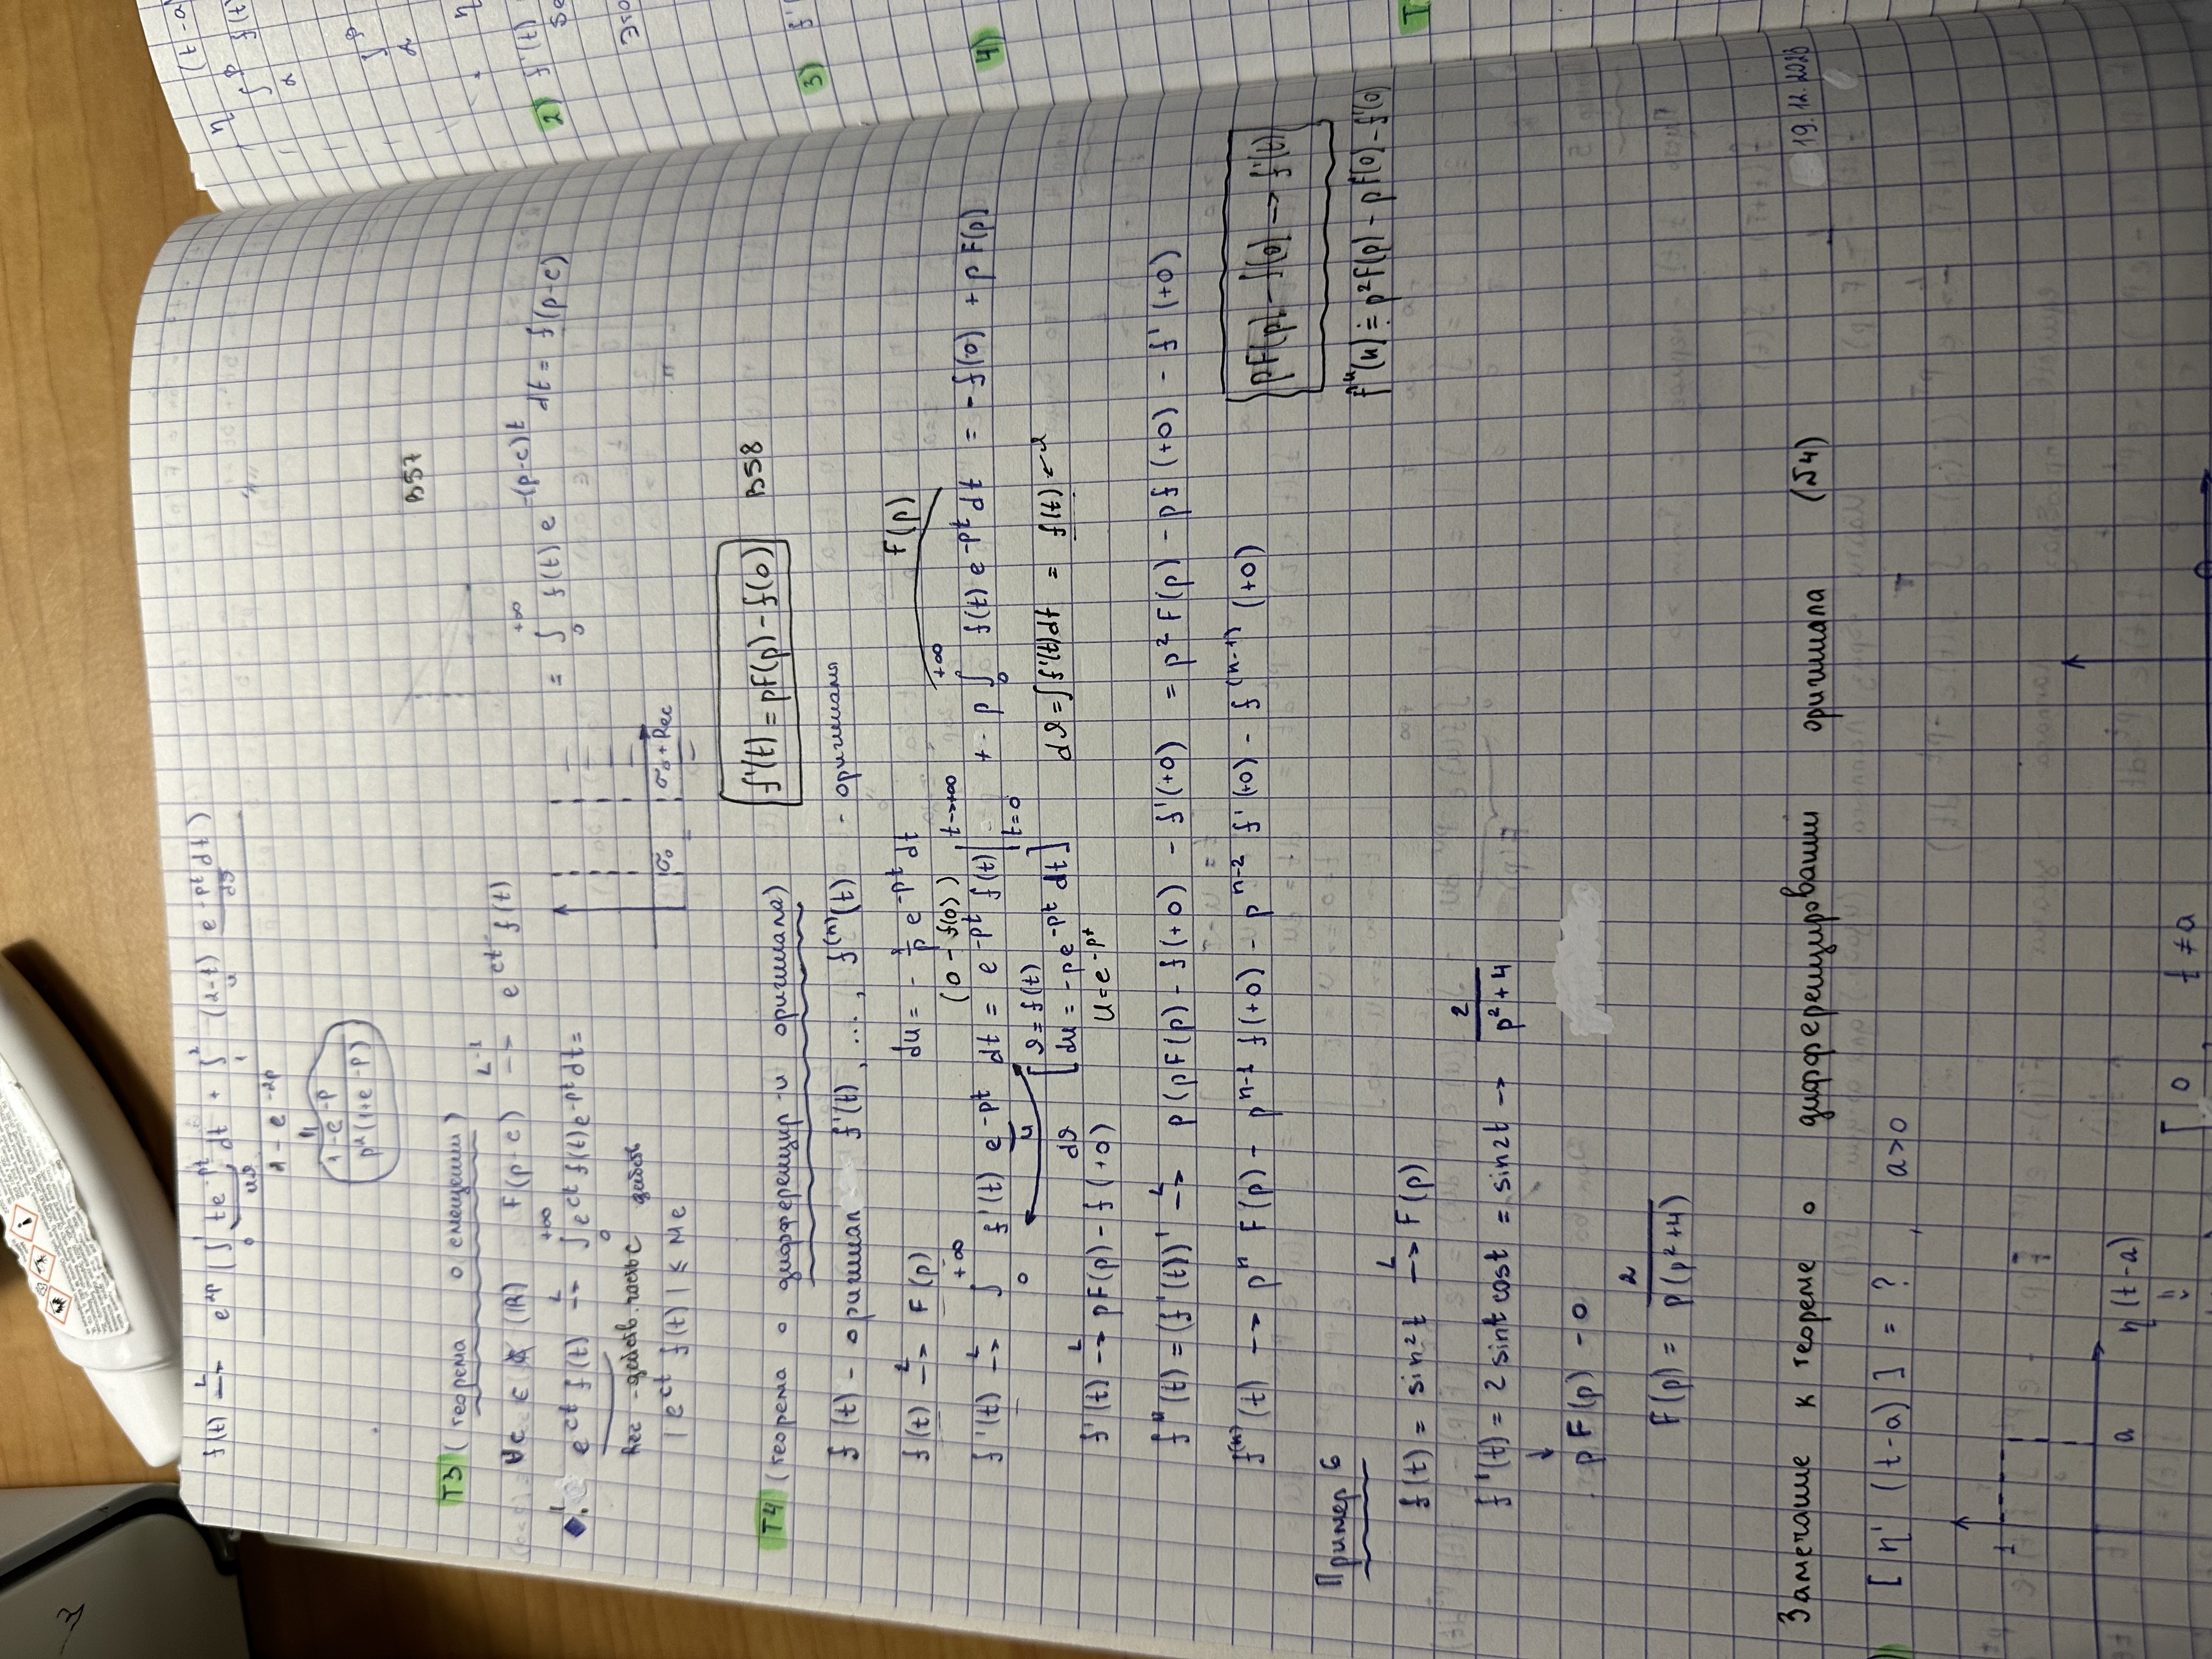 f(t) →^L e^2p (∫_0^1 te^-pt dt + ∫_1^2 (2-t) e^-pt dt)
2 - e^-2p
1 - e^-p
p²(1+e^-p)
В57
T3 (теорема о смещении)
∀c ∈ ₵ (ℝ) F(p-c) →^(L^-1) e^ct f(t)
e^ct f(t) →^L ∫_0^+∞ e^ct f(t) e^-pt dt = = ∫_0^+∞ f(t) e^-(p-c)t dt = f(p-c)
Rec - действ. часть c действ
|e^ct f(t)| ≤ Me
σ₀ σ₀ + Rec
f'(t) = pF(p) - f(0) В58
T4 (теорема о дифференцир-и оригинала)
f(t) - оригинал f'(t), ..., f^(n)(t) - оригиналы
f(t) →^L F(p) du = -1/p e^-pt dt F(p)
(0 - f(0))
f'(t) →^L ∫_0^+∞ f'(t) e^-pt dt = e^-pt f(t) |_t=0^t→+∞ + p ∫_0^+∞ f(t) e^-pt dt = -f(0) + pF(p)
u
dϑ
[ϑ = f(t)
du = -pe^-pt dt] dϑ = ∫f'(t)dt = f(t)
f'(t) →^L pF(p) - f(+0) u = e^-pt
f''(t) = (f'(t))' →^L p(pF(p) - f(+0) - f'(+0) = p² F(p) - pf(+0) - f'(+0)
f^(n)(t) → p^n F(p) - p^n-1 f(+0) - p^n-2 f'(+0) - f^(n-1)(+0)
pF(p) - f(0) → f'(t)
f''(x) ≓ p²F(p) - pf(0) - f'(0)
Пример 6
f(t) = sin²t →^L F(p)
f'(t) = 2 sint cost = sin2t → 2/(p²+4)
↓
pF(p) - 0
F(p) = 2/(p(p²+4))
Замечание к теореме о дифференцировании оригинала (T4) 19.12.2023
[η'(t-a)] = ?, a>0
1
a η(t-a)
[0, t≠a
η (t-a
∫ f(t
2) f'(t)
Это
3) f'(
4)
T